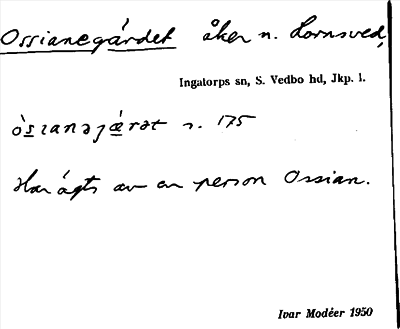 Ossianegärdet åker n. Lornsved,
Ingatorps sn, S. Vedbo hd, Jkp. l.
òsɩanəjærət s. 175
Har ägts av en person Ossian.
Ivar Modéer 1950